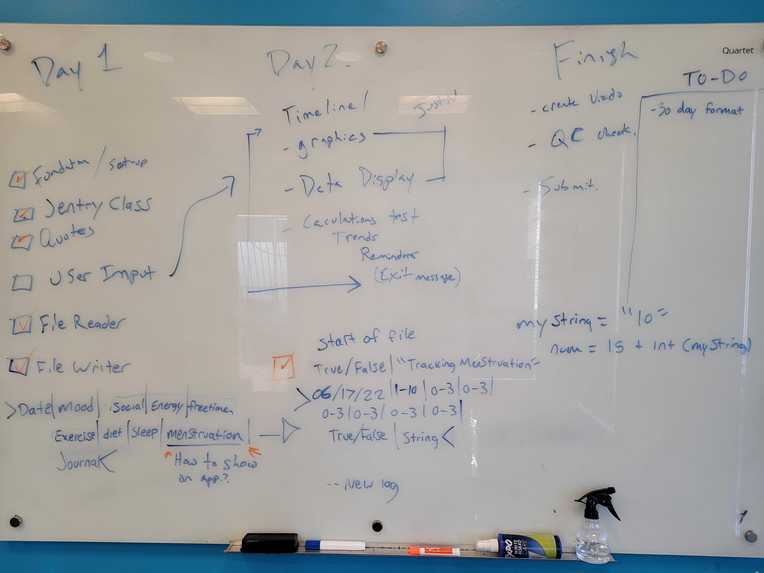 Quartet
Day 1
Fundatm / set-up
Jentry Class
Quotes
User Input
File Reader
File Writer
>Date|Mood| Social|Energy|freetime|
Exercise|diet|Sleep|menstruation|
Journal<
How to show
an app.?
Day 2.
Timeline/
Justin
- graphics
- Data Display
- Caculations test
Trends
Reminders
(Exit message)
start of file
True/False|"Tracking Menstruation"
>06/17/22|1-10|0-3|0-3|
0-3|0-3|0-3|0-3|
True/False|String<
-- New log
Finish
- create Video
- QC check.
- Submit.
TO-DO
- 30 day format
my String = "10"
num = 15 + int (myString)
EXPO